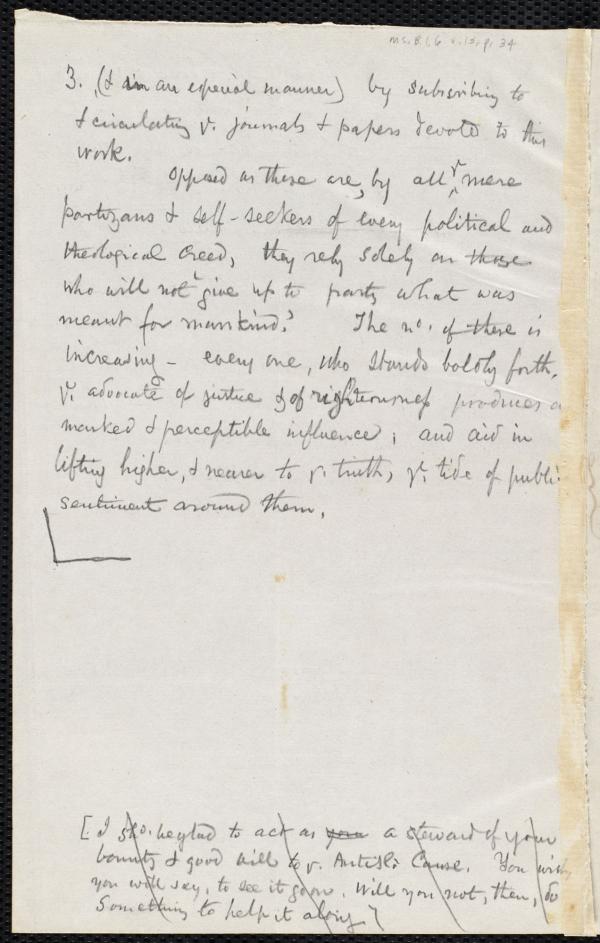 Ms. B.1.6 v.15, p. 34
3. (& in an especial manner) by subscribing to
& circulating y. journals & papers devoted to this
work.
Opposed as these are, by all y. mere
partizans & self-seekers of every political and
theological creed, they rely solely on those
who will not "give up to party what was
meant for mankind." The no. of these is
increasing – every one, who stands boldly forth,
y. advocate of justice & of righteousness produces a
marked & perceptible influence; and aid in
lifting higher, & nearer to y. truth, y. tide of public
sentiment around them.
[I sho. be glad to act as your a steward of your
bounty & good will to y. Antisl: Cause. You wish,
you will say, to see it go on. Will you not, then, do
something to help it along?